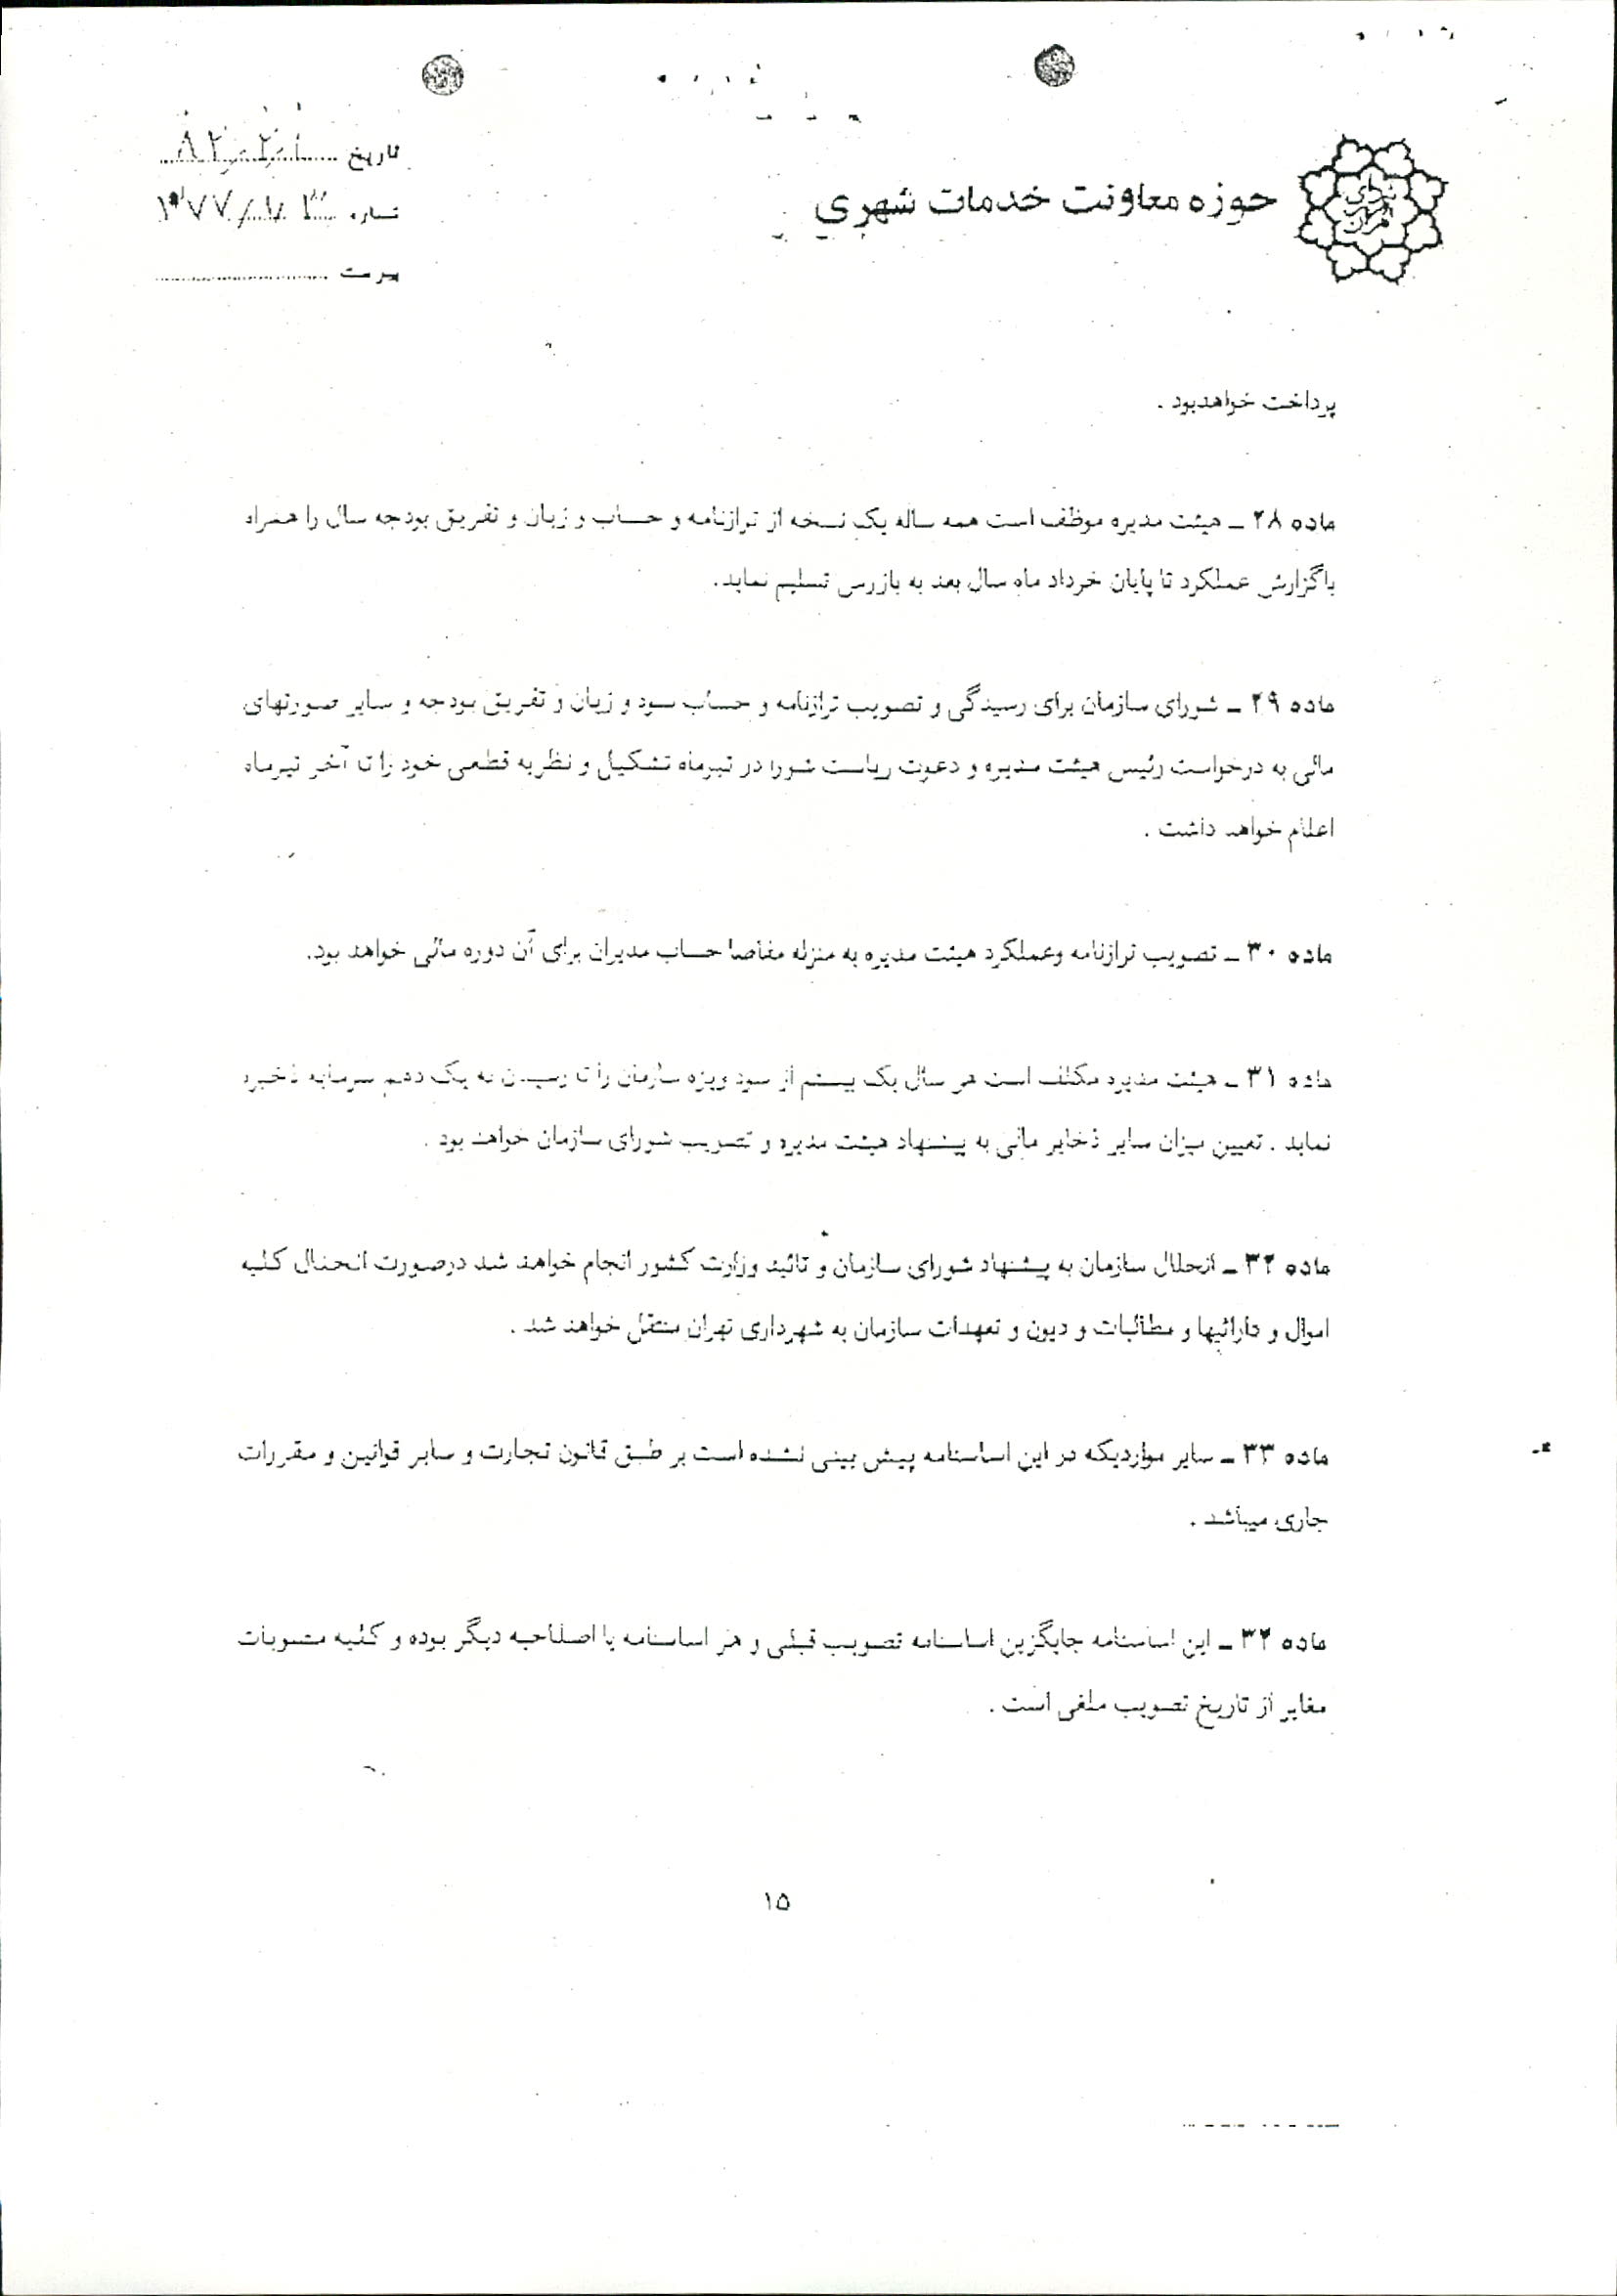 تاریخ
حوزه معاونت خدمات شهری
شماره
پیوست
پرداخت خواهدبود .
ماده ۲۸ ـ هیئت مدیره موظف است همه ساله یک نسخه از ترازنامه و حساب و زیان و تفریق بودجه سال را همراه
باگزارش عملکرد تا پایان خرداد ماه سال بعد به بازرس تسلیم نماید.
ماده ۲۹ ـ شورای سازمان برای رسیدگی و تصویب ترازنامه و حساب سود و زیان و تفریق بودجه و سایر صورتهای
مالی به درخواست رئیس هیئت مدیره و دعوت ریاست شورا در تیرماه تشکیل و نظریه قطعی خود را تا آخر تیرماه
اعلام خواهد داشت .
ماده ۳۰ ـ تصویب ترازنامه وعملکرد هیئت مدیره به منزله مفاصا حساب مدیران برای آن دوره مالی خواهد بود.
ماده ۳۱ ـ هیئت مدیره مکلف است هر سال یک بیستم از سود ویژه سازمان را تا رسیدن به یک دهم سرمایه ذخیره
نماید . تعیین میزان سایر ذخایر مالی به پیشنهاد هیئت مدیره و تصویب شورای سازمان خواهد بود .
ماده ۳۲ ـ انحلال سازمان به پیشنهاد شورای سازمان و تائید وزارت کشور انجام خواهد شد درصورت انحلال کلیه
اموال و دارائیها و مطالبات و دیون و تعهدات سازمان به شهرداری تهران منتقل خواهد شد .
ماده ۳۳ ـ سایر مواردیکه در این اساسنامه پیش بینی نشده است بر طبق قانون تجارت و سایر قوانین و مقررات
جاری میباشد .
ماده ۳۴ ـ این اساسنامه جایگزین اساسنامه تصویب قبلی و هر اساسنامه یا اصلاحیه دیگر بوده و کلیه مصوبات
مغایر از تاریخ تصویب ملغی است .
۱۵